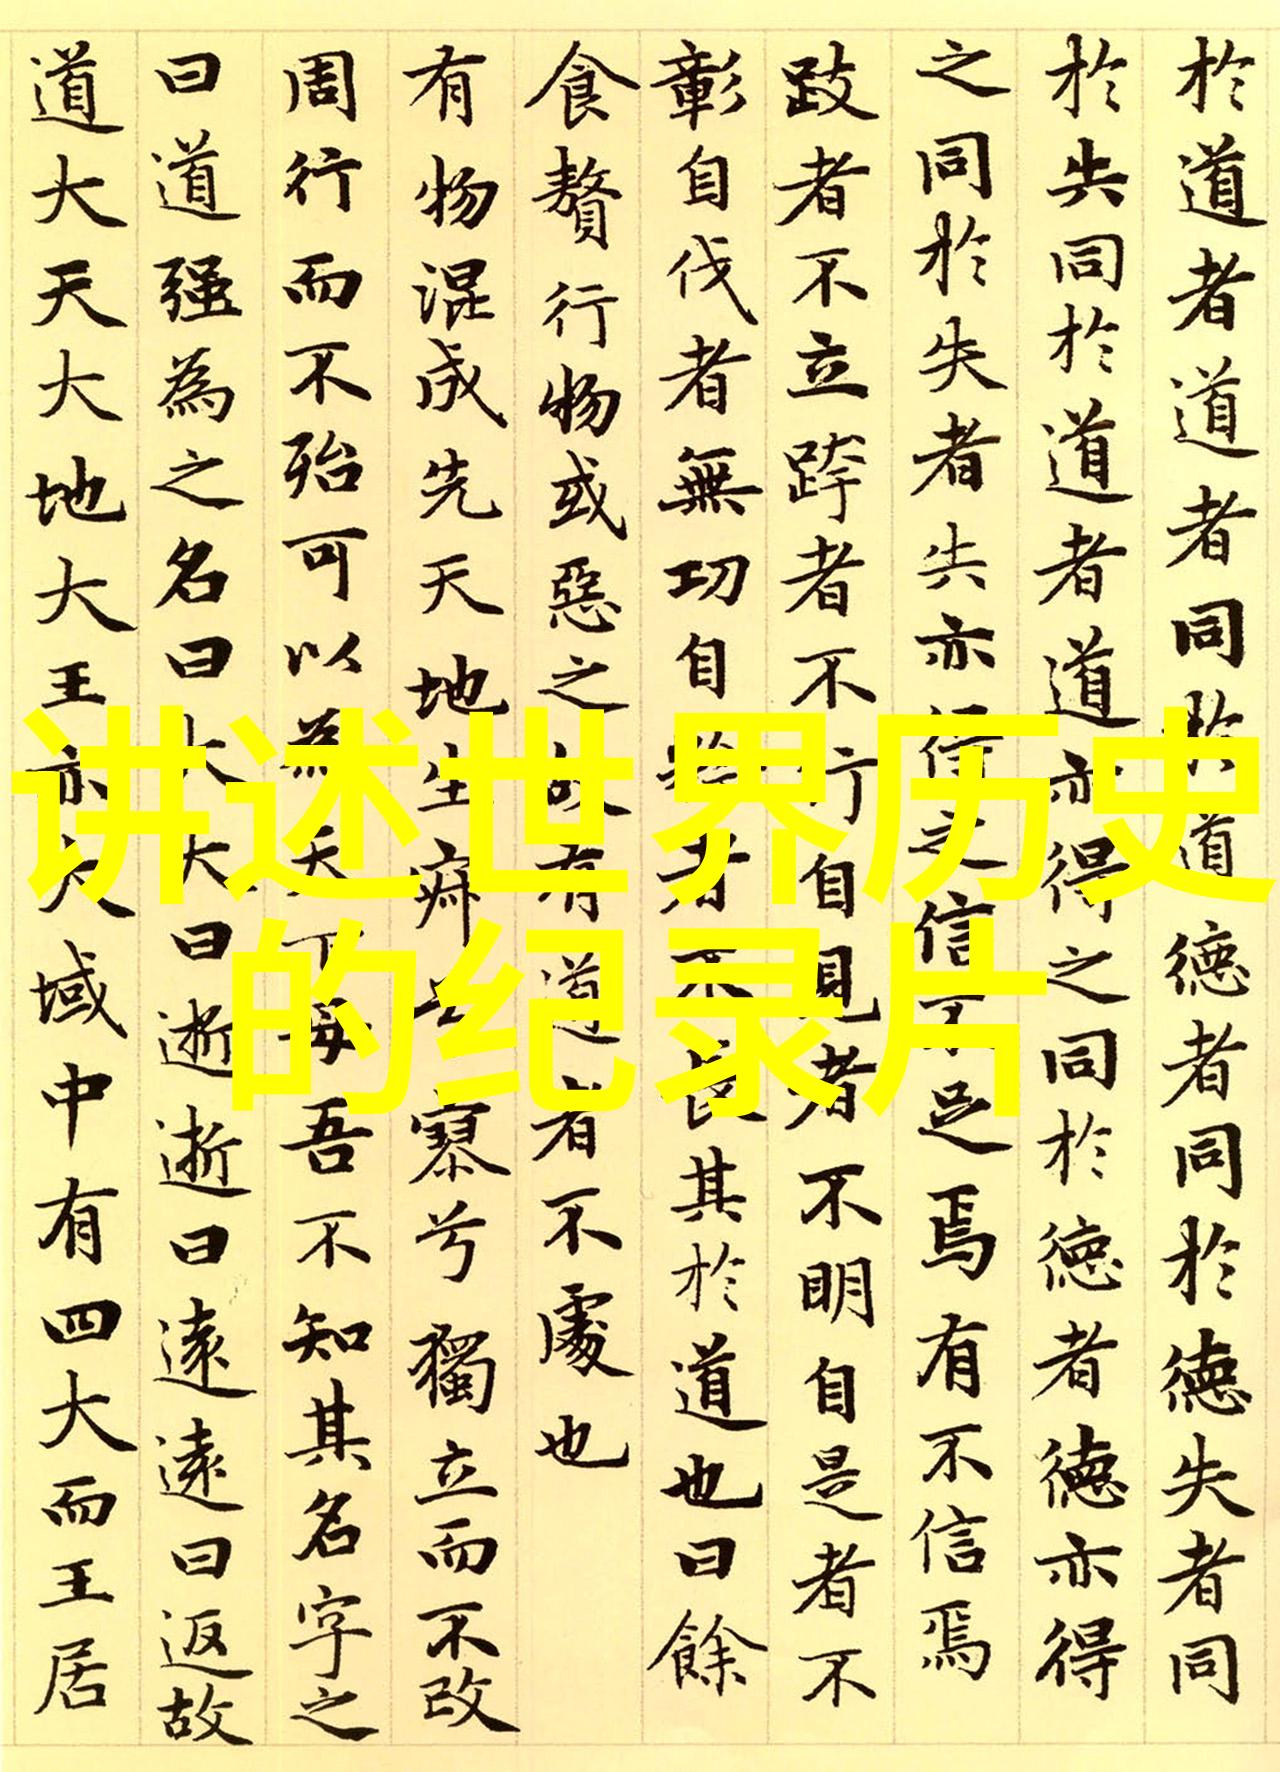 於道者道者同於道德者同於德失者同
於失同於道者道亦得之同於德者德亦得
之同於失者失亦得之信不足焉有不信焉
跂者不立跨者不行自見者不明自是者不
彰自伐者無功自矜者不長其於道也曰餘
食贅行物或惡之故有道者不處也
有物混成先天地生寂兮寥兮獨立而不改
周行而不殆可以為天下母吾不知其名字之
曰道强為之名曰大大曰逝逝曰遠遠曰返故
道大天大地大王亦大域中有四大而王居
讲述世界历史
的纪录片